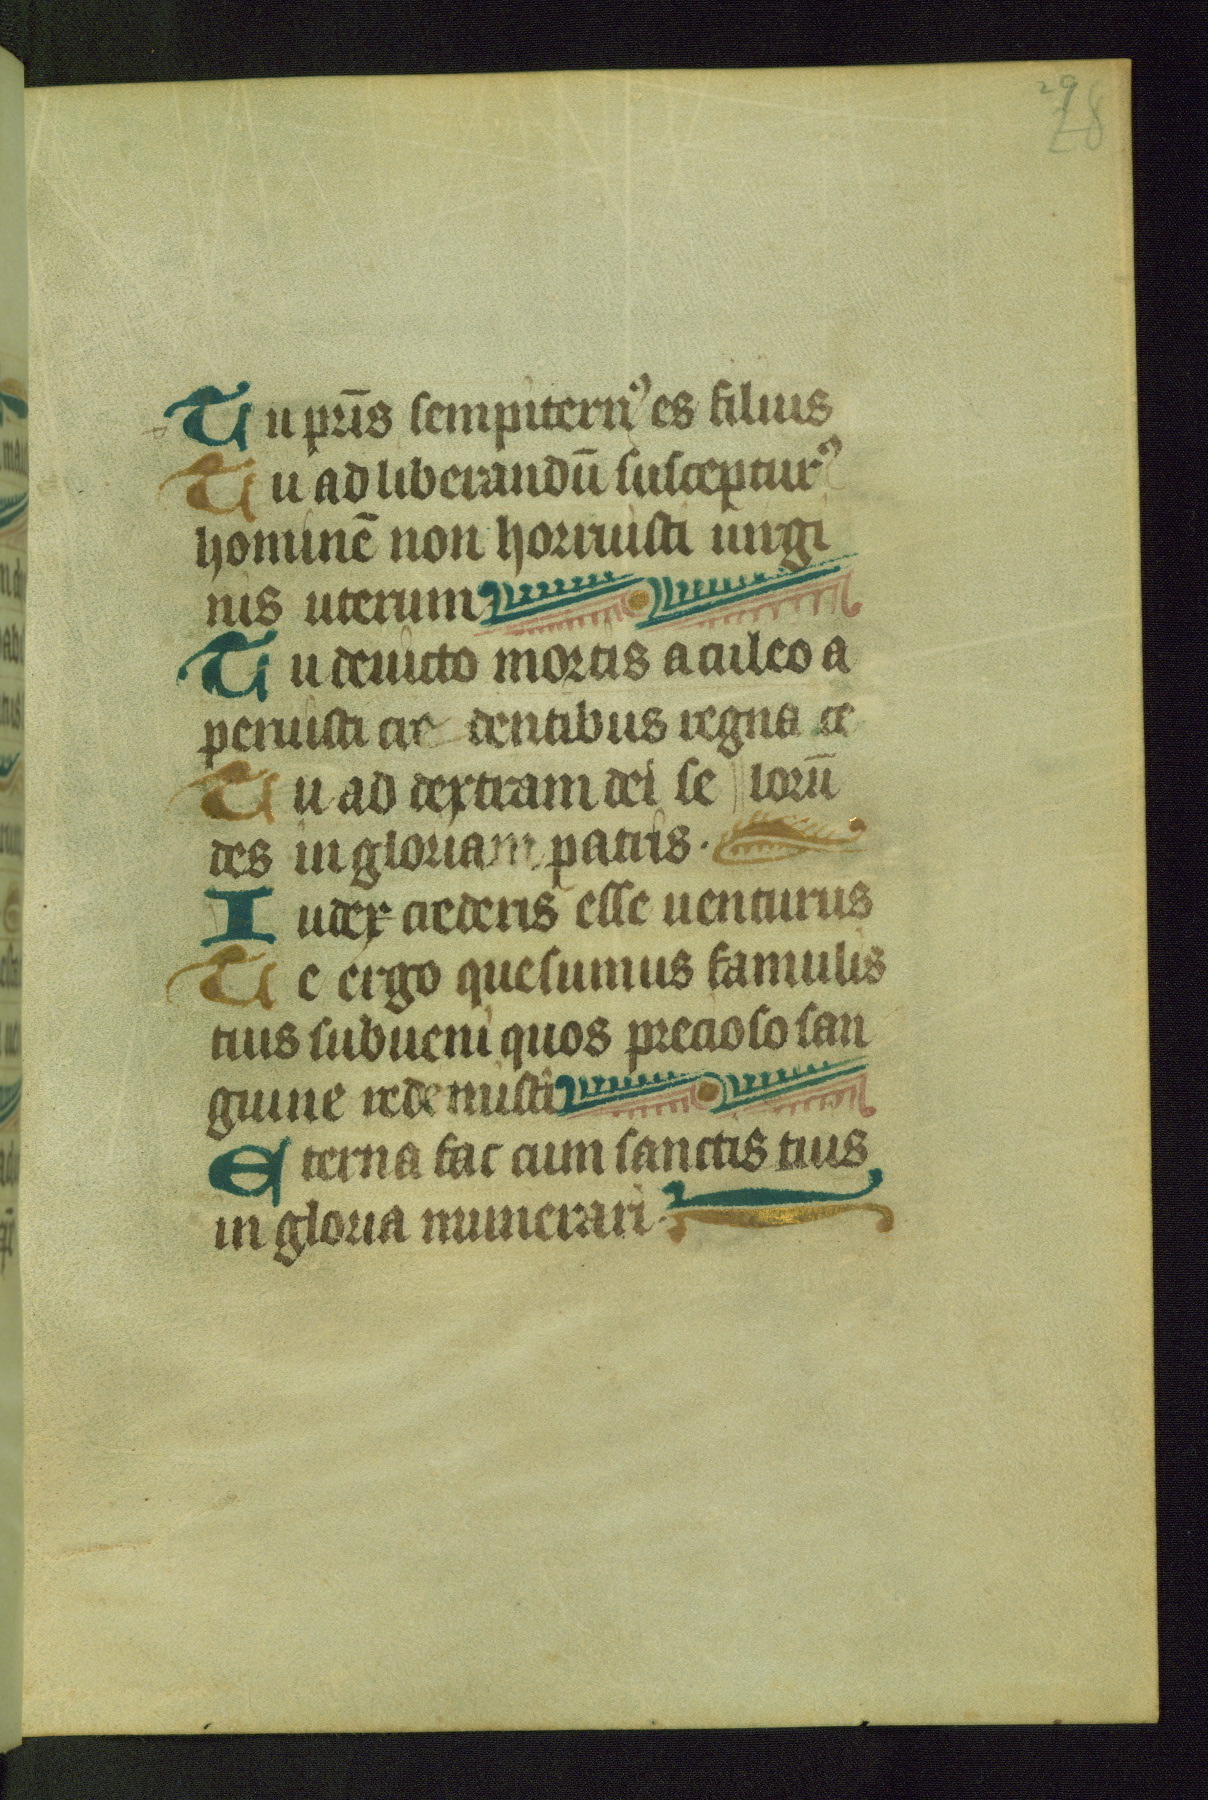 29
28
Tu pr̄is sempiternꝰ es filius
Tu ad liberandū suscepturꝰ
hominē non horruisti uirgi
nis uterum
Tu deuicto mortis aculeo a
peruisti cre dentibus regna ce
Tu ad dextram dei se || lorū
des in gloriam patris.
Iudex crederis esse uenturus
Te ergo quesumus famulis
tuis subueni quos precioso san
guine redemisti
Eterna fac cum sanctis tuis
in gloria numerari.